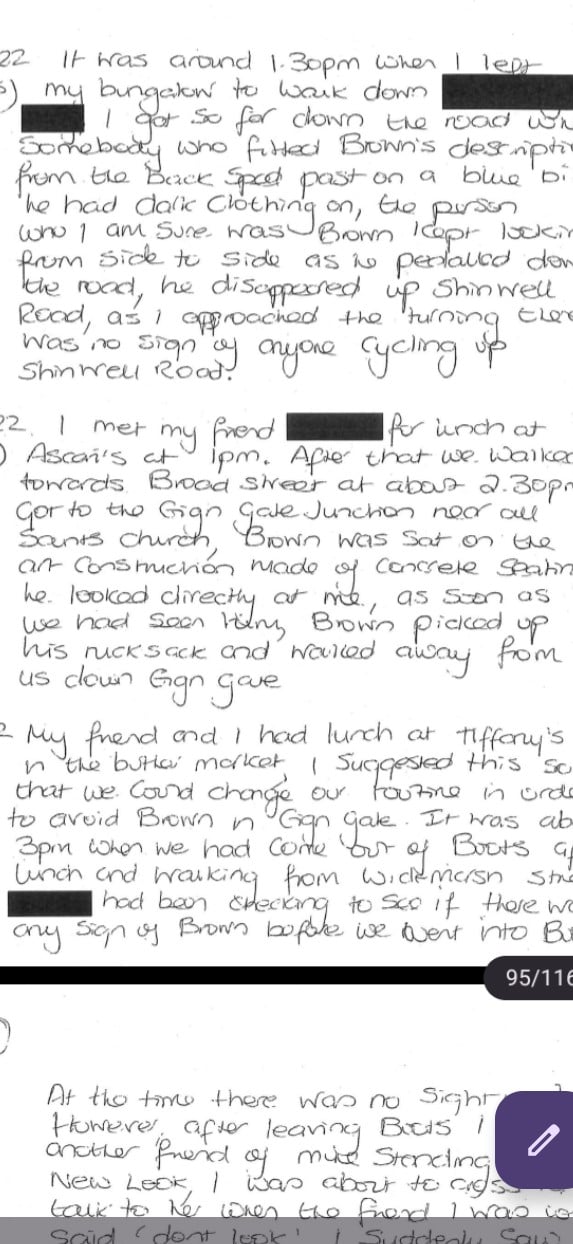 22 It was around 1.30pm when I left
my bungalow to walk down
I got so far down the road
Somebody who fitted Brown's descripti
from the Back Sped past on a blue bi
he had dark clothing on, the person
who I am sure was Brown kept lookin
from side to side as he pedalled dow
the road, he disappeared up Shinwell
Road, as I approached the turning ther
was no sign of anyone cycling up
Shinwell Road.
22. I met my friend for lunch at
Ascari's at 1pm. After that we walked
towards Broad Street at about 2.30pm
Got to the Gign Gate Junction near all
Saints Church, Brown was sat on the
art Construction made of concrete Seatin
he looked directly at me, as soon as
we had seen him, Brown picked up
his rucksack and walked away from
us down Gign gate
2 My friend and I had lunch at Tiffany's
in the butter market, I suggested this so
that we could change our routine in orde
to avoid Brown in Gign gate. It was ab
3pm when we had come out of Boots af
lunch and walking from Widemarsh Stre
had been checking to see if there wa
any sign of Brown before we went into
95/116
At the time there was no sight
However, after leaving Boots I
another friend of mine Standing
New Look, I was about to cross
talk to her when the friend I was
Said 'dont look' I Suddenly Saw